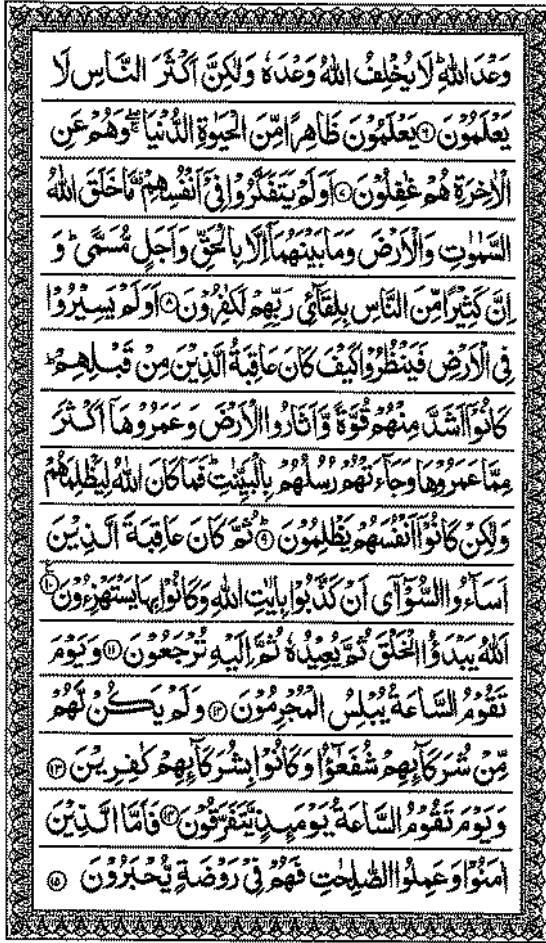 وَعْدَ اللّٰهِ ؕ لَا يُخْلِفُ اللّٰهُ وَعْدَهٗ وَلٰكِنَّ اَكْثَرَ النَّاسِ لَا
يَعْلَمُوْنَ ۶ يَعْلَمُوْنَ ظَاهِرًا مِّنَ الْحَيٰوةِ الدُّنْيَا ۚۖ وَهُمْ عَنِ
الْاٰخِرَةِ هُمْ غٰفِلُوْنَ ۷ اَوَلَمْ يَتَفَكَّرُوْا فِيْۤ اَنْفُسِهِمْ ۫ مَا خَلَقَ اللّٰهُ
السَّمٰوٰتِ وَالْاَرْضَ وَمَا بَيْنَهُمَاۤ اِلَّا بِالْحَقِّ وَاَجَلٍ مُّسَمًّى ؕ وَ
اِنَّ كَثِيْرًا مِّنَ النَّاسِ بِلِقَآئِ رَبِّهِمْ لَكٰفِرُوْنَ ۸ اَوَلَمْ يَسِيْرُوْا
فِي الْاَرْضِ فَيَنْظُرُوْا كَيْفَ كَانَ عَاقِبَةُ الَّذِيْنَ مِنْ قَبْلِهِمْ ؕ
كَانُوْۤا اَشَدَّ مِنْهُمْ قُوَّةً وَّاَثَارُوا الْاَرْضَ وَعَمَرُوْهَاۤ اَكْثَرَ
مِمَّا عَمَرُوْهَا وَجَآءَتْهُمْ رُسُلُهُمْ بِالْبَيِّنٰتِ ؕ فَمَا كَانَ اللّٰهُ لِيَظْلِمَهُمْ
وَلٰكِنْ كَانُوْۤا اَنْفُسَهُمْ يَظْلِمُوْنَ ؕ ۹ ثُمَّ كَانَ عَاقِبَةَ الَّذِيْنَ
اَسَآءُوا السُّوْٓاٰۤى اَنْ كَذَّبُوْا بِاٰيٰتِ اللّٰهِ وَكَانُوْا بِهَا يَسْتَهْزِءُوْنَ ۱۰
اَللّٰهُ يَبْدَؤُا الْخَلْقَ ثُمَّ يُعِيْدُهٗ ثُمَّ اِلَيْهِ تُرْجَعُوْنَ ۱۱ وَيَوْمَ
تَقُوْمُ السَّاعَةُ يُبْلِسُ الْمُجْرِمُوْنَ ۱۲ وَلَمْ يَكُنْ لَّهُمْ
مِّنْ شُرَكَآئِهِمْ شُفَعٰٓؤُا وَكَانُوْا بِشُرَكَآئِهِمْ كٰفِرِيْنَ ۱۳
وَيَوْمَ تَقُوْمُ السَّاعَةُ يَوْمَئِذٍ يَّتَفَرَّقُوْنَ ۱۴ فَاَمَّا الَّذِيْنَ
اٰمَنُوْا وَعَمِلُوا الصّٰلِحٰتِ فَهُمْ فِيْ رَوْضَةٍ يُّحْبَرُوْنَ ۱۵